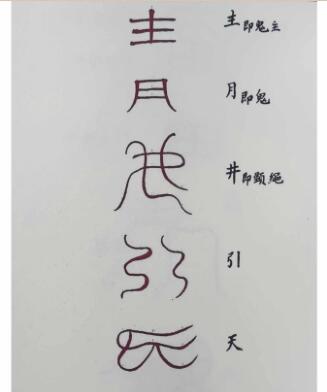 主即鬼主
月即鬼
井即顕绳
引
天